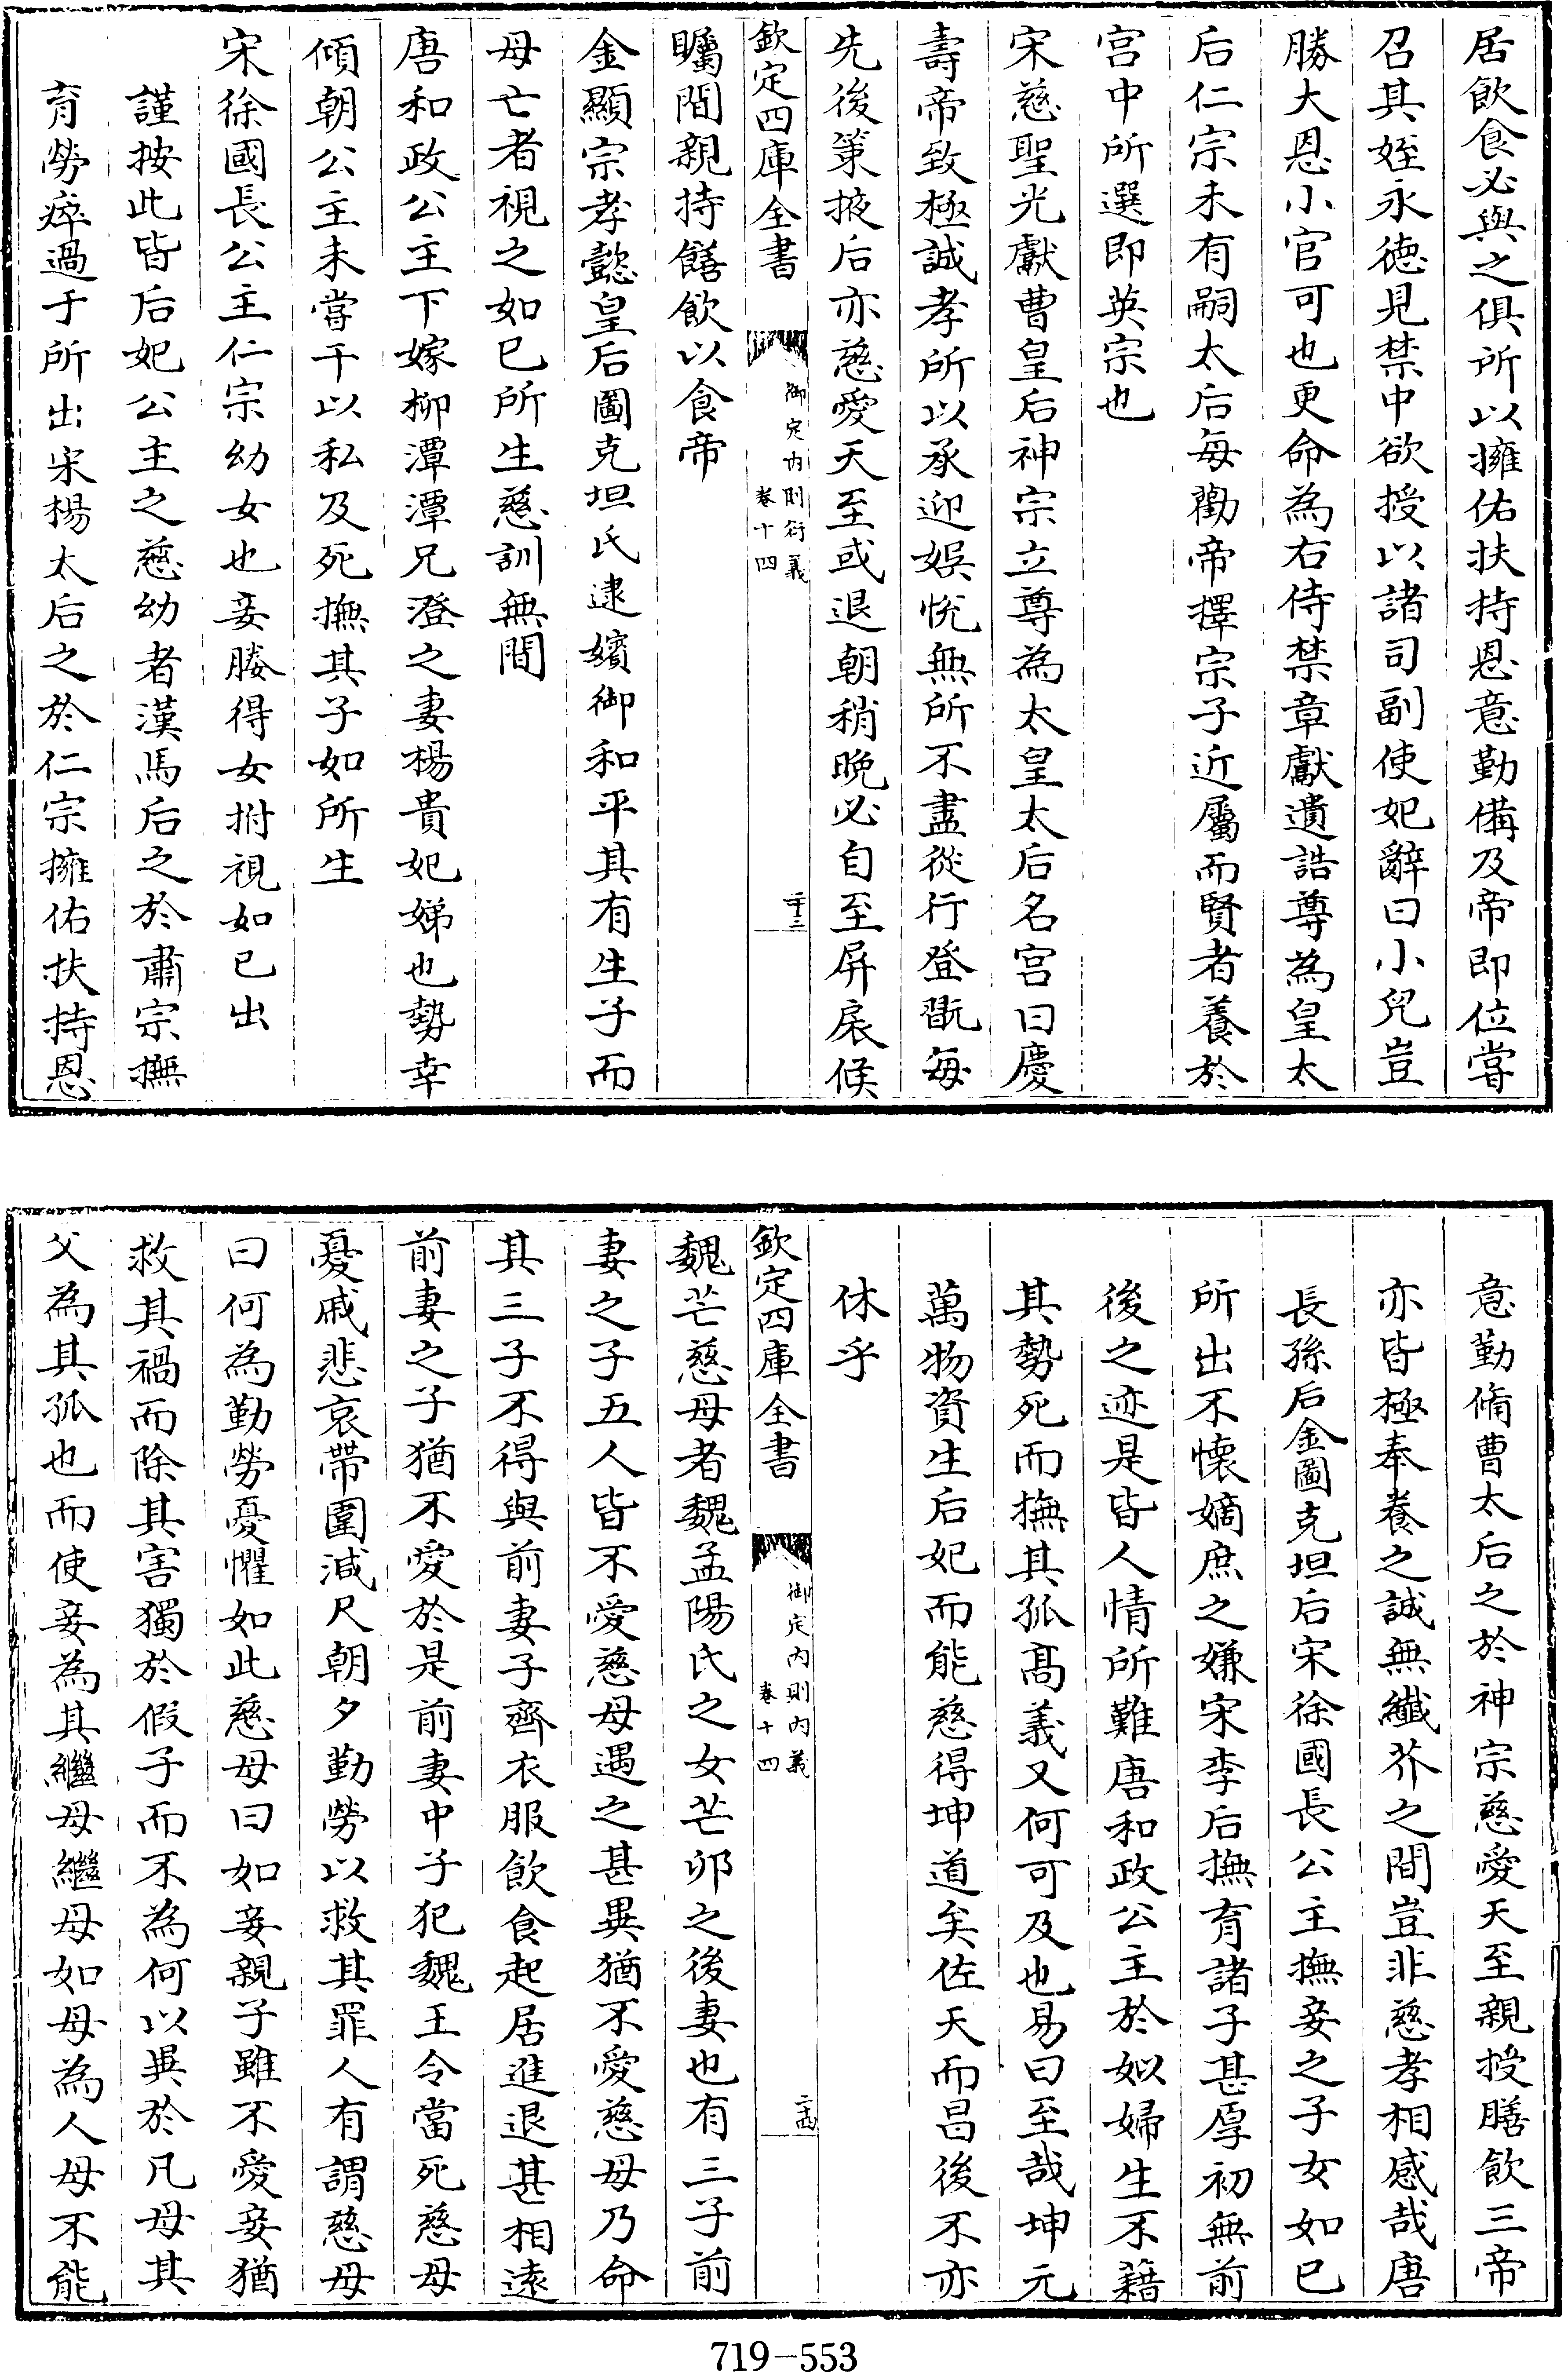 居飲食必與之俱所以擁佑扶持恩意勤備及帝即位嘗
召其姪永德見禁中欲授以諸司副使妃辭曰小兒豈
勝大恩小官可也更命為右侍禁章獻遺誥尊為皇太
后仁宗未有嗣太后每勸帝擇宗子近屬而賢者養於
宫中所選即英宗也
宋慈聖光獻曹皇后神宗立尊為太皇太后名宫曰慶
壽帝致極誠孝所以承迎娛悅無所不盡從行登翫每
先後策掖后亦慈愛天至或退朝稍晚必自至屏扆候
欽定四庫全書
御定内則衍義
卷十四
二十三
矚間親持饍飲以食帝
金顯宗孝懿皇后圖克坦氏逮嬪御和平其有生子而
母亡者視之如已所生慈訓無間
唐和政公主下嫁柳潭潭兄澄之妻楊貴妃娣也勢幸
傾朝公主未嘗干以私及死撫其子如所生
宋徐國長公主仁宗幼女也妾媵得女拊視如已出
謹按此皆后妃公主之慈幼者漢馬后之於肅宗撫
育勞瘁過于所出宋楊太后之於仁宗擁佑扶持恩
意勤脩曹太后之於神宗慈愛天至親授膳飲三帝
亦皆極奉養之誠無纖芥之間豈非慈孝相感哉唐
長孫后金圖克坦后宋徐國長公主撫妾之子女如已
所出不懷嫡庶之嫌宋李后撫育諸子甚厚初無前
後之迹是皆人情所難唐和政公主於姒婦生不藉
其勢死而撫其孤髙義又何可及也易曰至哉坤元
萬物資生后妃而能慈得坤道矣佐天而昌後不亦
休乎
欽定四庫全書
御定内則内義
卷十四
二十四
魏芒慈母者魏孟陽氏之女芒卯之後妻也有三子前
妻之子五人皆不愛慈母遇之甚異猶不愛慈母乃命
其三子不得與前妻子齊衣服飲食起居進退甚相逺
前妻之子猶不愛於是前妻中子犯魏王令當死慈母
憂戚悲哀帶圍減尺朝夕勤勞以救其罪人有謂慈母
曰何為勤勞憂懼如此慈母曰如妾親子雖不愛妾猶
救其禍而除其害獨於假子而不為何以異於凡母其
父為其孤也而使妾為其繼母繼母如母為人母不能
719-553